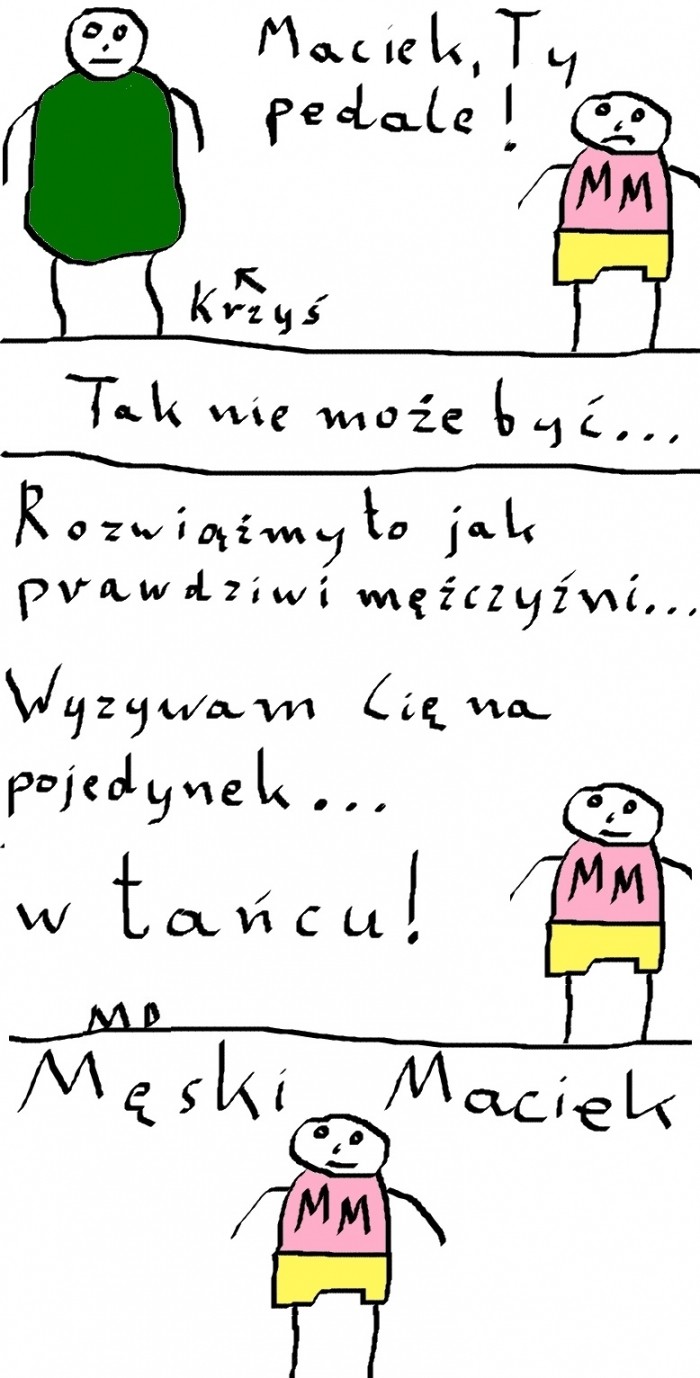 Maciek, Ty
pedale!
MM
Krzyś
Tak nie może być...
Rozwiąźmy to jak
prawdziwi mężczyźni...
Wyzywam Cię na
pojedynek...
w tańcu!
MM
MD
Męski Maciek
MM